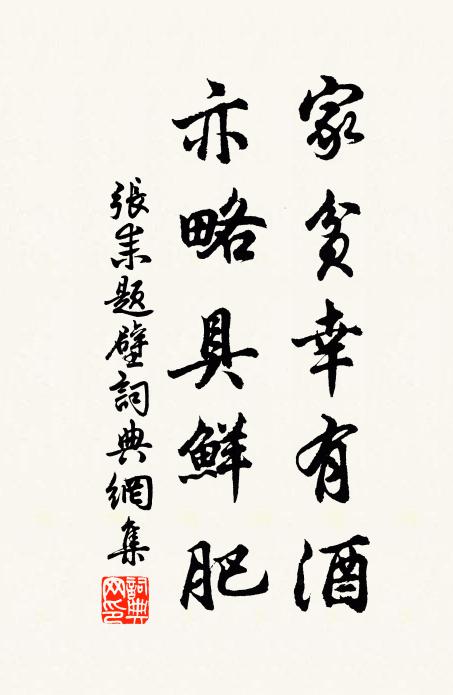 家貧幸有酒
亦略具鮮肥
張耒題壁詞典網集
詞典网印